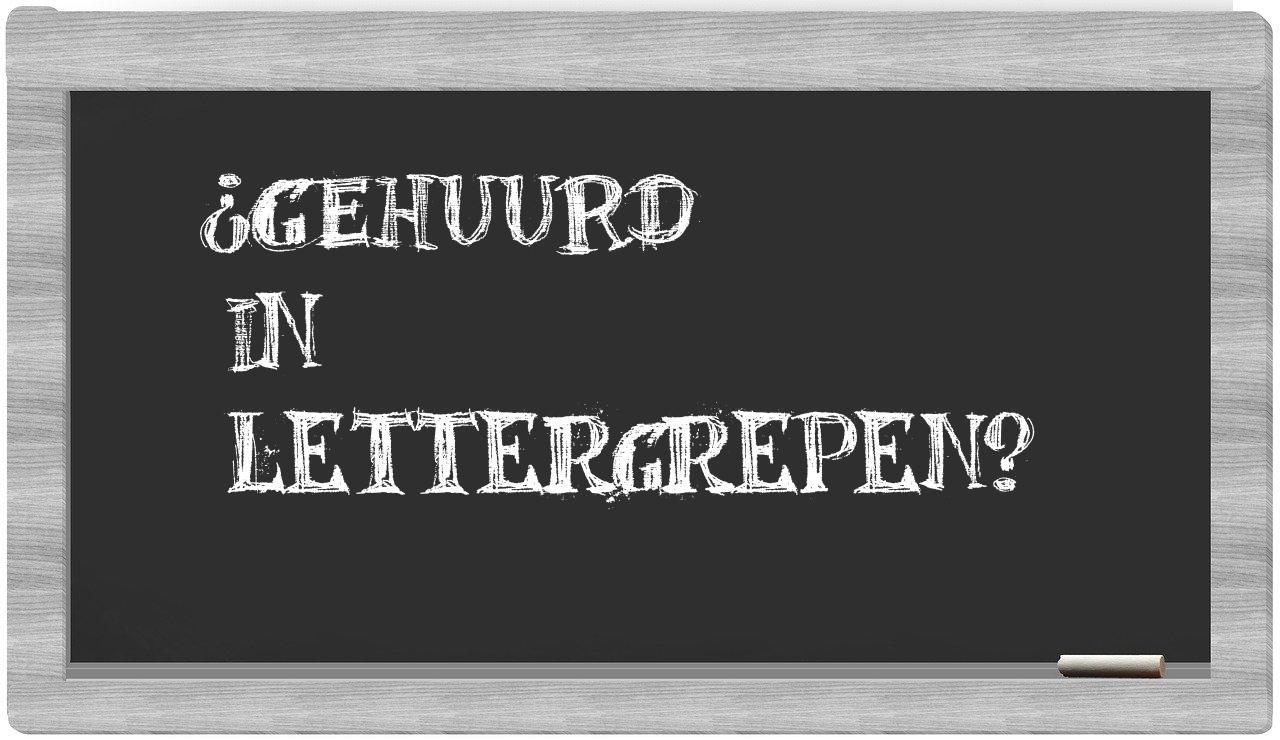 ¿GEHUURD
IN
LETTERGREPEN?